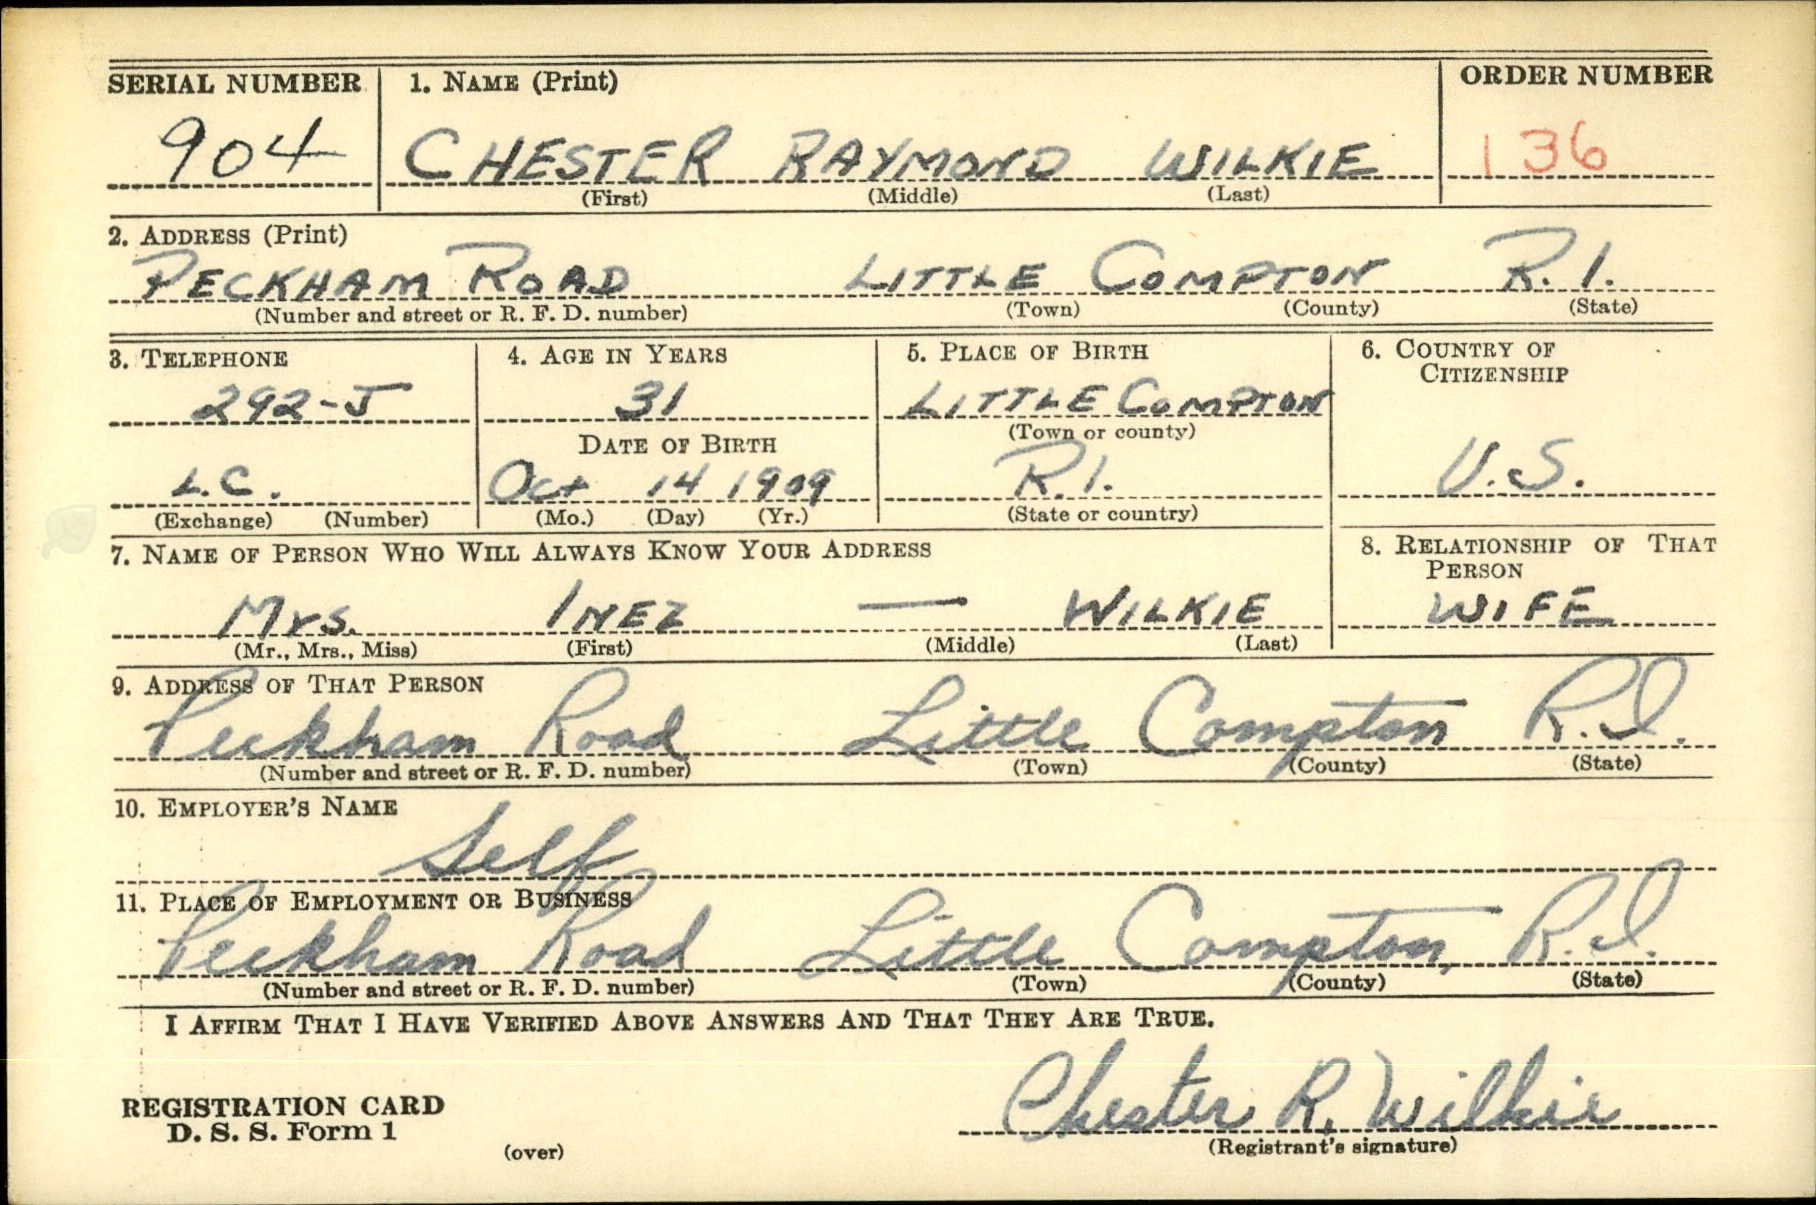 SERIAL NUMBER 1. NAME (Print) ORDER NUMBER
904 CHESTER RAYMOND WILKIE 136
(First) (Middle) (Last)
2. ADDRESS (Print)
PECKHAM ROAD LITTLE COMPTON R.I.
(Number and street or R. F. D. number) (Town) (County) (State)
3. TELEPHONE 4. AGE IN YEARS 5. PLACE OF BIRTH 6. COUNTRY OF
CITIZENSHIP
292-J 31 LITTLE COMPTON
DATE OF BIRTH (Town or county)
L.C. Oct 14 1909 R.I. U.S.
(Exchange) (Number) (Mo.) (Day) (Yr.) (State or country)
7. NAME OF PERSON WHO WILL ALWAYS KNOW YOUR ADDRESS 8. RELATIONSHIP OF THAT
PERSON
Mrs. INEZ — WILKIE WIFE
(Mr., Mrs., Miss) (First) (Middle) (Last)
9. ADDRESS OF THAT PERSON
Peckham Road Little Compton R.I.
(Number and street or R. F. D. number) (Town) (County) (State)
10. EMPLOYER'S NAME
Self
11. PLACE OF EMPLOYMENT OR BUSINESS
Peckham Road Little Compton, R.I.
(Number and street or R. F. D. number) (Town) (County) (State)
I AFFIRM THAT I HAVE VERIFIED ABOVE ANSWERS AND THAT THEY ARE TRUE.
REGISTRATION CARD
D. S. S. Form 1 Chester R. Wilkie
(over) (Registrant's signature)